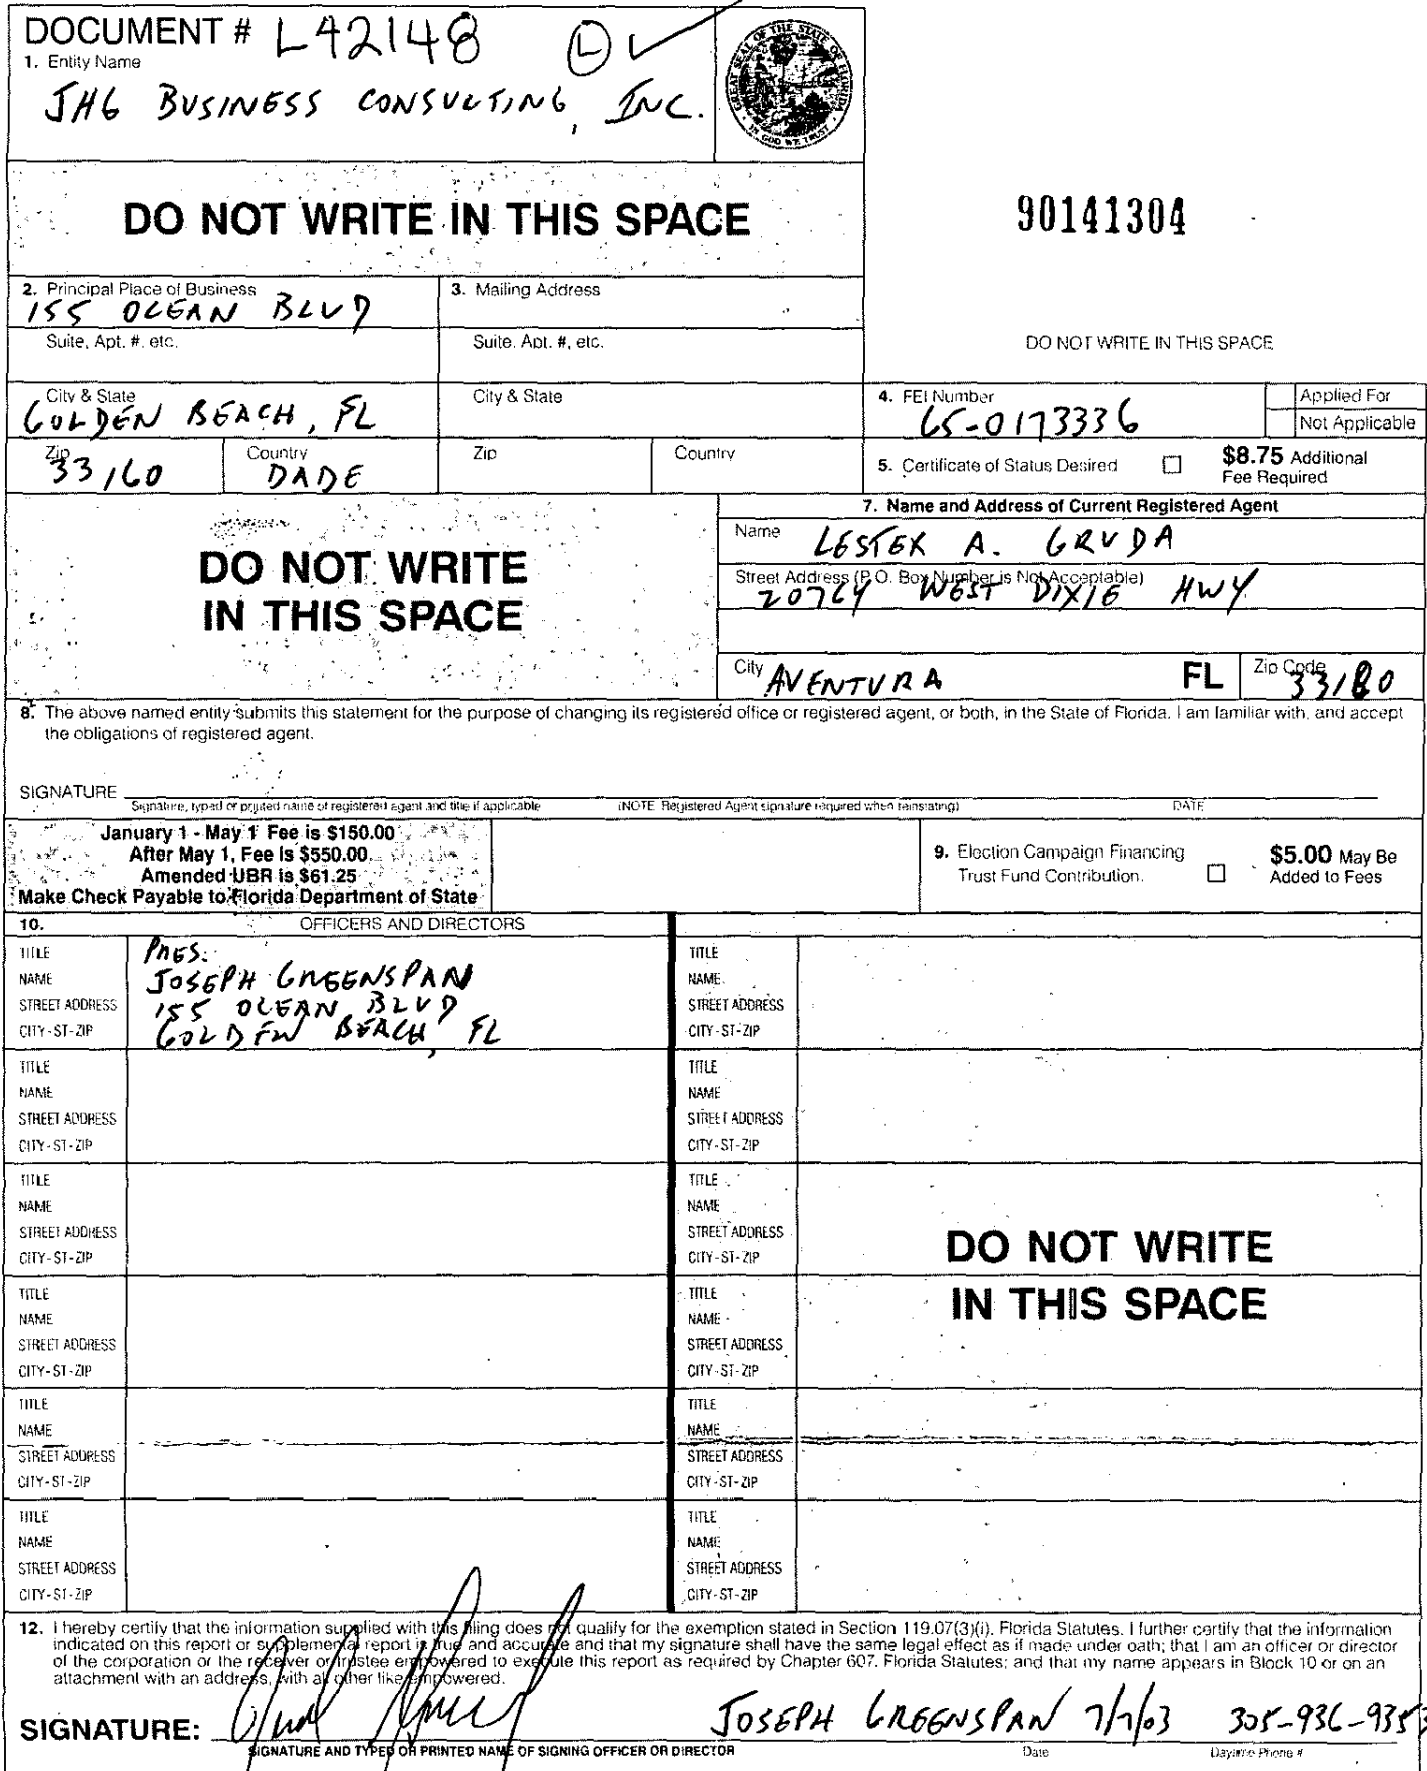 DOCUMENT # L42148 L
1. Entity Name
JHG BUSINESS CONSULTING, INC.
GREAT SEAL OF THE STATE OF FLORIDA
IN GOD WE TRUST
DO NOT WRITE IN THIS SPACE
90141304
2. Principal Place of Business
155 OCEAN BLVD
3. Mailing Address
Suite, Apt. #, etc.
Suite, Apt. #, etc.
DO NOT WRITE IN THIS SPACE
City & State
GOLDEN BEACH, FL
City & State
4. FEI Number
65-0173336
Applied For
Not Applicable
Zip
33160
Country
DADE
Zip
Country
5. Certificate of Status Desired
$8.75 Additional
Fee Required
DO NOT WRITE
IN THIS SPACE
7. Name and Address of Current Registered Agent
Name LESTER A. GRUDA
Street Address (P.O. Box Number is Not Acceptable)
20764 WEST DIXIE HWY
City AVENTURA FL Zip Code 33180
8. The above named entity submits this statement for the purpose of changing its registered office or registered agent, or both, in the State of Florida. I am familiar with, and accept
the obligations of registered agent.
SIGNATURE
Signature, typed or printed name of registered agent and title if applicable (NOTE Registered Agent signature required when reinstating) DATE
January 1 - May 1 Fee is $150.00
After May 1, Fee is $550.00
Amended UBR is $61.25
Make Check Payable to Florida Department of State
9. Election Campaign Financing
Trust Fund Contribution.
$5.00 May Be
Added to Fees
10. OFFICERS AND DIRECTORS
TITLE PRES.
NAME JOSEPH GREENSPAN
STREET ADDRESS 155 OCEAN BLVD
CITY-ST-ZIP GOLDEN BEACH, FL
TITLE
NAME
STREET ADDRESS
CITY-ST-ZIP
TITLE
NAME
STREET ADDRESS
CITY-ST-ZIP
TITLE
NAME
STREET ADDRESS
CITY-ST-ZIP
TITLE
NAME
STREET ADDRESS
CITY-ST-ZIP
TITLE
NAME
STREET ADDRESS
CITY-ST-ZIP
TITLE
NAME
STREET ADDRESS
CITY-ST-ZIP
TITLE
NAME
STREET ADDRESS
CITY-ST-ZIP
TITLE
NAME
STREET ADDRESS
CITY-ST-ZIP
TITLE
NAME
STREET ADDRESS
CITY-ST-ZIP
TITLE
NAME
STREET ADDRESS
CITY-ST-ZIP
TITLE
NAME
STREET ADDRESS
CITY-ST-ZIP
DO NOT WRITE
IN THIS SPACE
12. I hereby certify that the information supplied with this filing does not qualify for the exemption stated in Section 119.07(3)(i), Florida Statutes. I further certify that the information
indicated on this report or supplemental report is true and accurate and that my signature shall have the same legal effect as if made under oath; that I am an officer or director
of the corporation or the receiver or trustee empowered to execute this report as required by Chapter 607, Florida Statutes; and that my name appears in Block 10 or on an
attachment with an address, with all other like empowered.
SIGNATURE: JOSEPH GREENSPAN 7/7/03 305-936-9353
SIGNATURE AND TYPED OR PRINTED NAME OF SIGNING OFFICER OR DIRECTOR Date Daytime Phone #